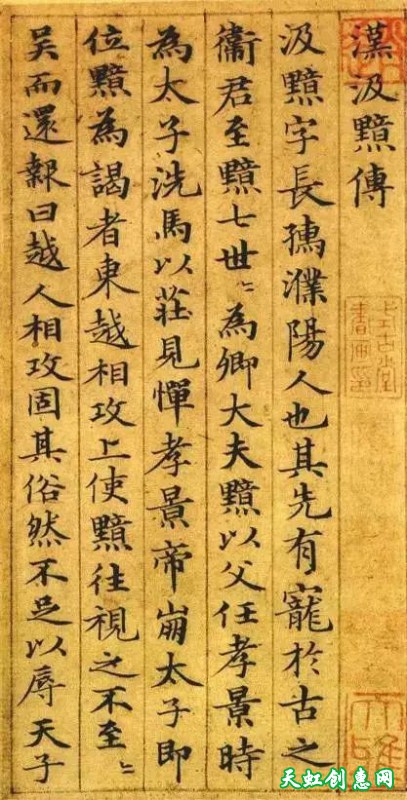 漢汲黯傳
汲黯字長孺濮陽人也其先有寵於古之
衛君至黯七世〻為卿大夫黯以父任孝景時
為太子洗馬以莊見憚孝景帝崩太子即
位黯為謁者東越相攻上使黯往視之不至〻
吳而還報曰越人相攻固其俗然不足以辱天子
天虹创惠网